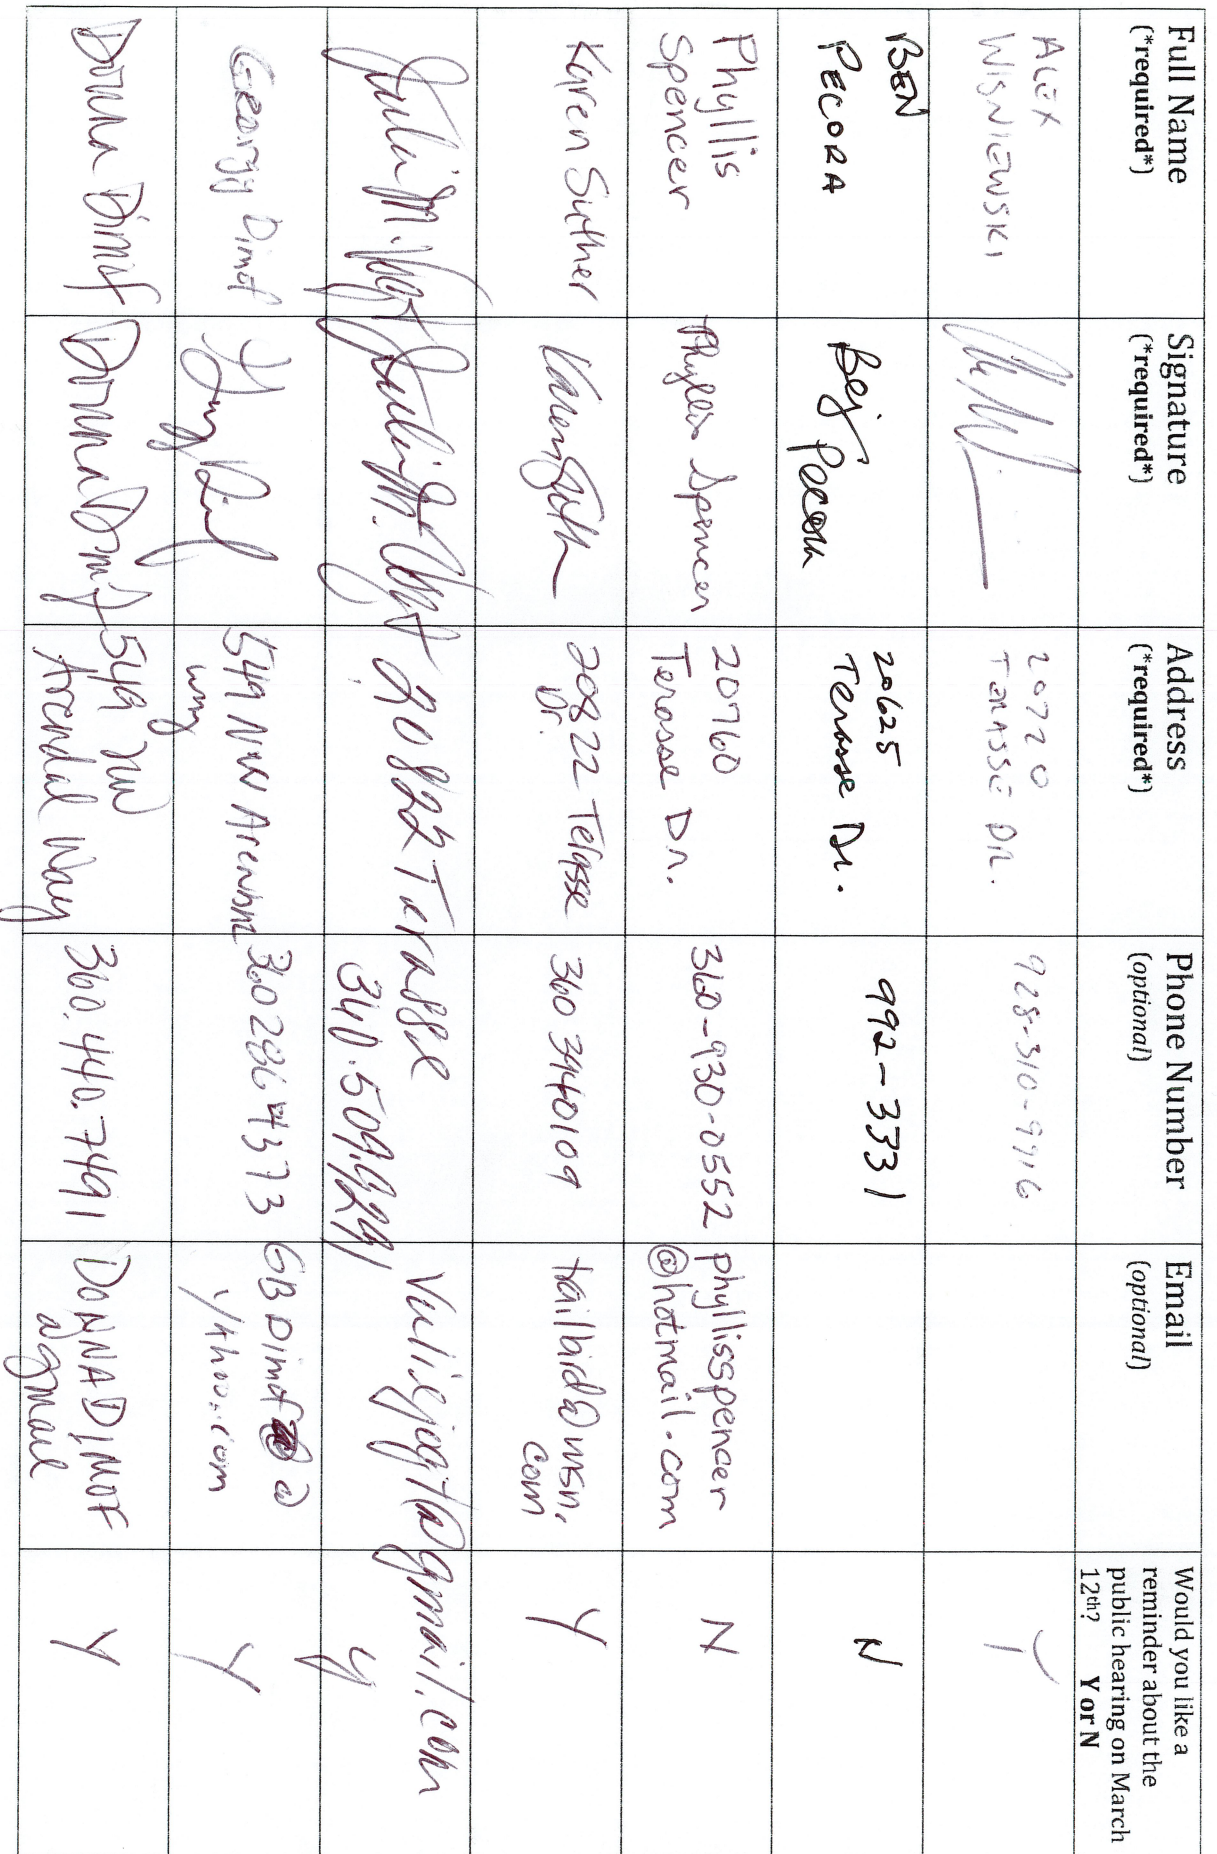 Full Name
(*required*)
Signature
(*required*)
Address
(*required*)
Phone Number
(optional)
Email
(optional)
Would you like a
reminder about the
public hearing on March
12th? Y or N
ALEX
WISNIEWSKI
20720
TERASSE DR.
928-310-9916
Y
BEN
PECORA
Ben Pecora
20625
Terasse Dr.
992-3331
N
Phyllis
Spencer
Phyllis Spencer
20760
Terasse Dr.
360-930-0552
phyllisspencer
@hotmail.com
N
Karen Suther
20822 Terasse
Dr.
360 3940109
tailbird@msn.
com
Y
Juli M. Vogt
Juli M. Vogt
20822 Terasse
360.509.9291
@gmail.com
y
Georgy Dimof
549 NW
Way
360286
GBDimof @
yahoo.com
Y
Donna Dimof
Donna Dimof
549 NW
Arendal Way
360.440.7491
DONNADIMOF
@gmail
Y